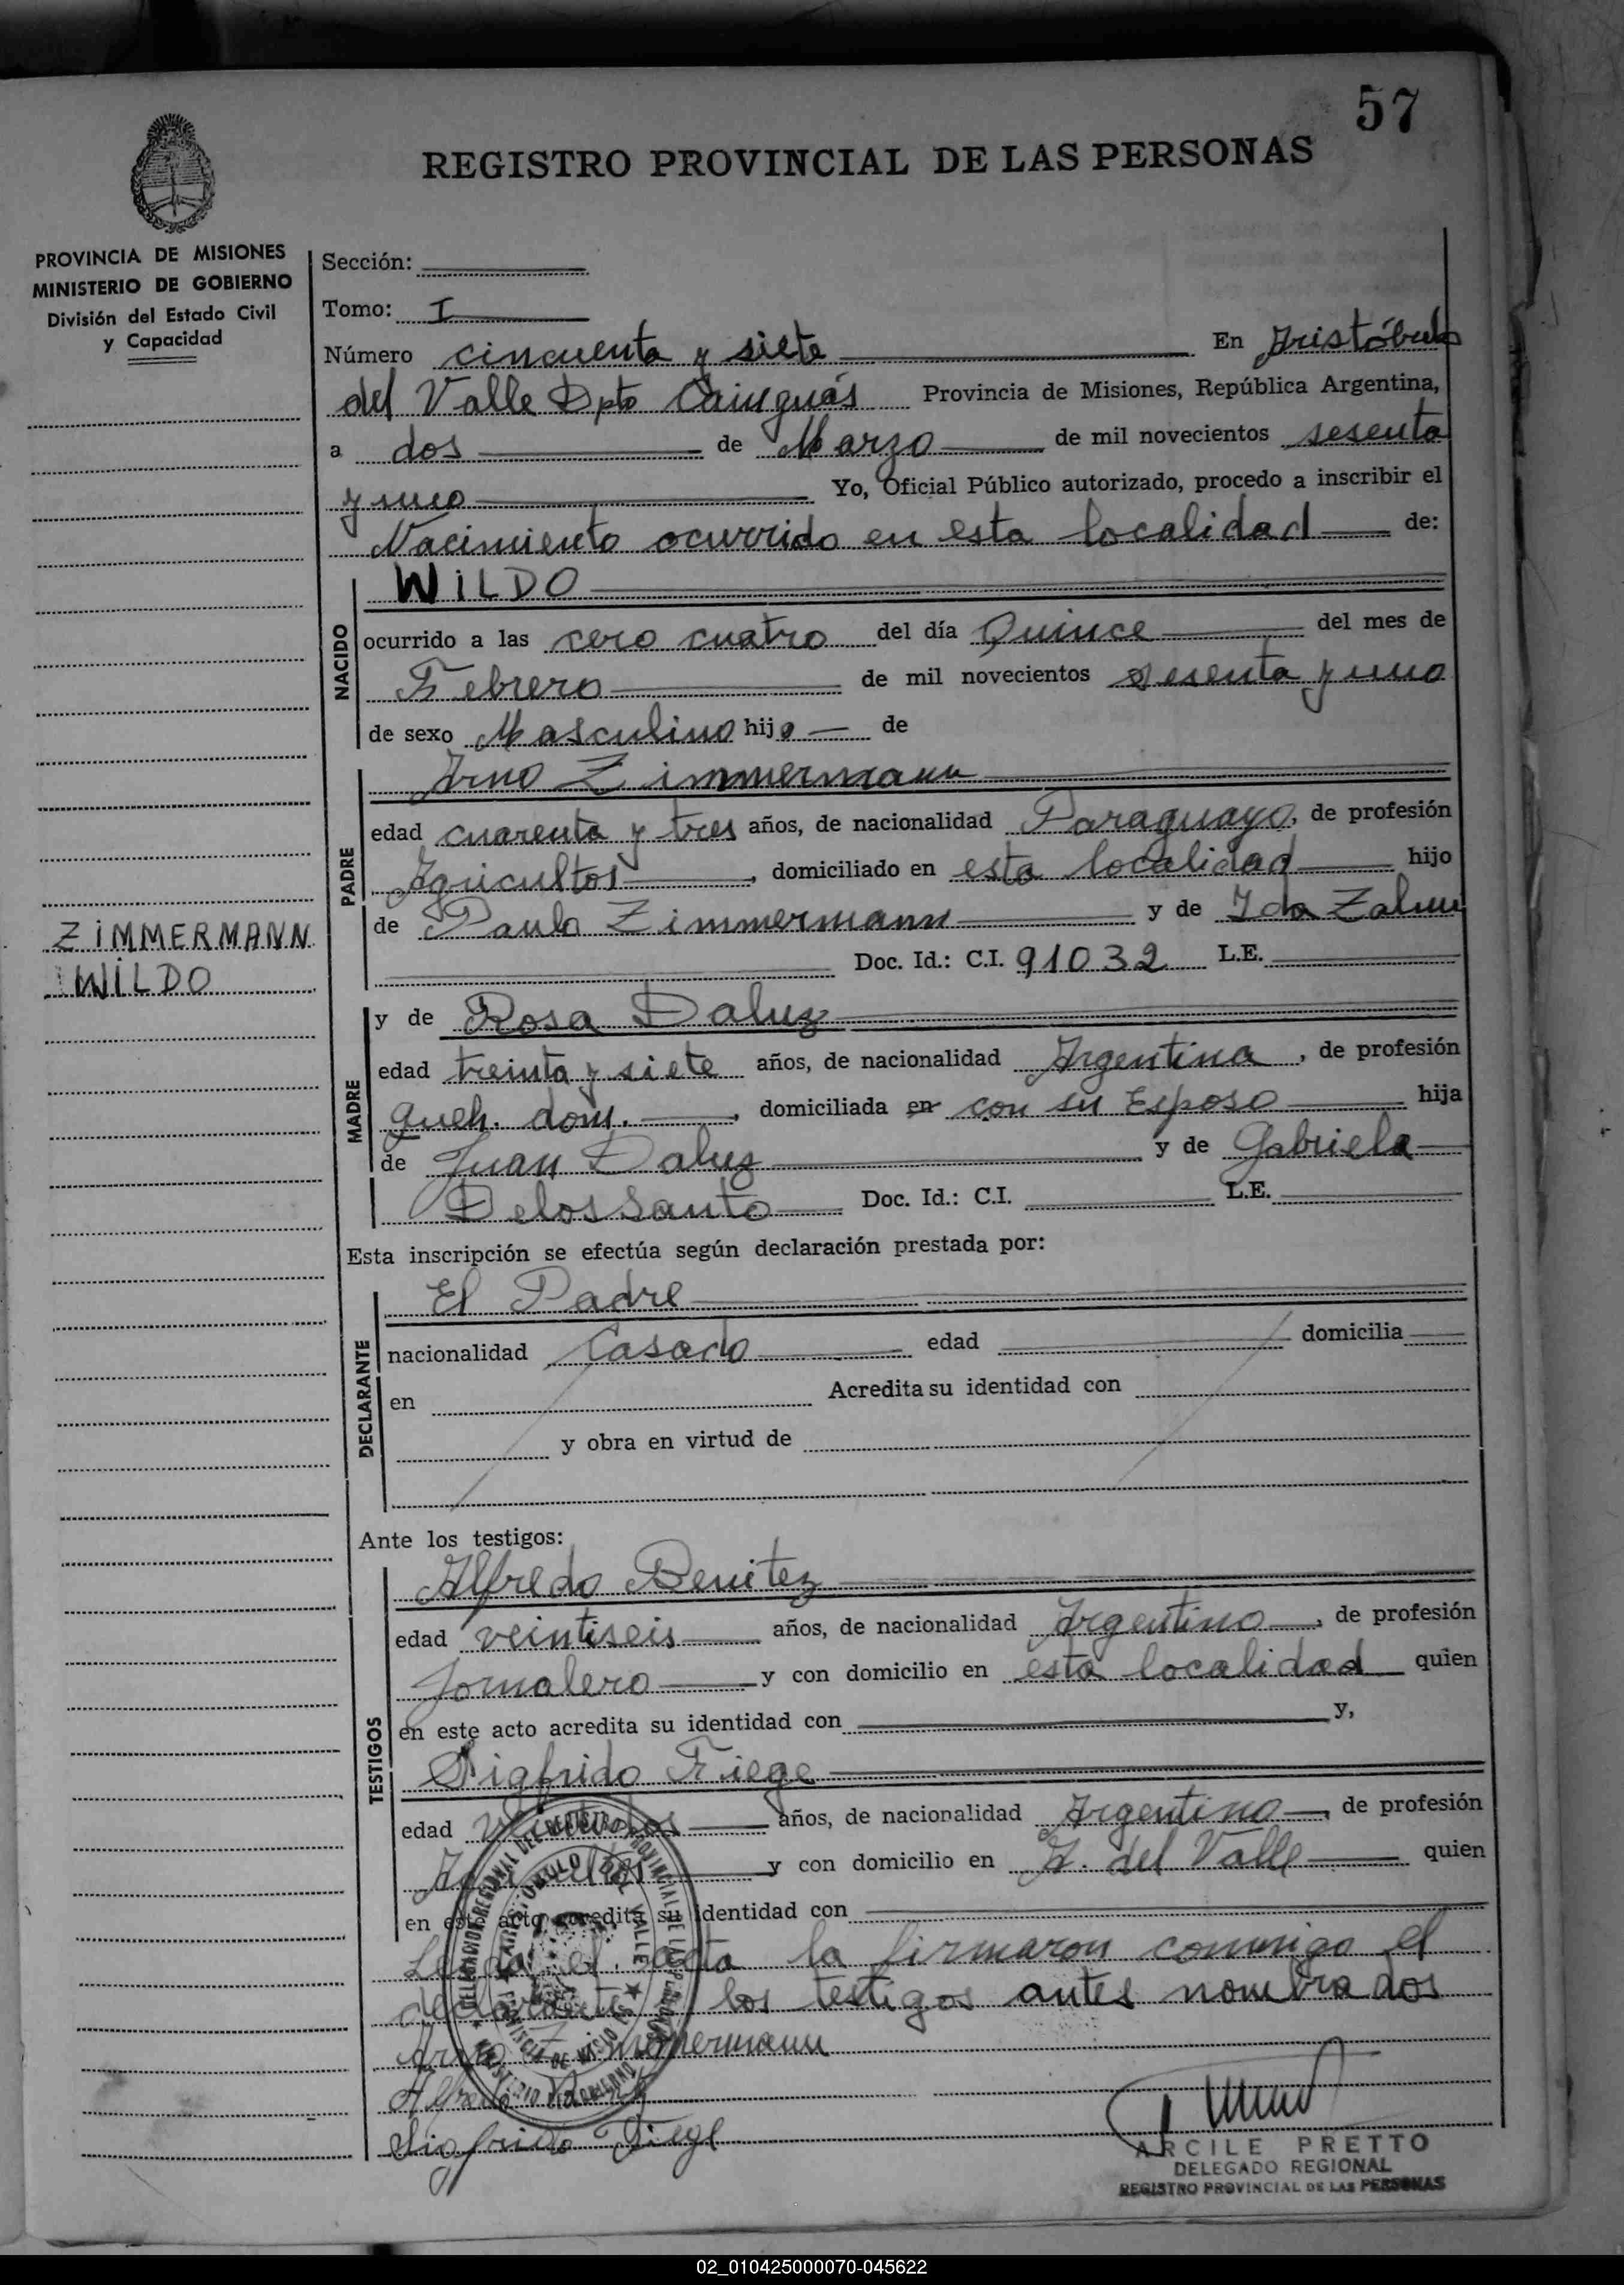 57
REGISTRO PROVINCIAL DE LAS PERSONAS
PROVINCIA DE MISIONES
MINISTERIO DE GOBIERNO
División del Estado Civil
y Capacidad
Sección:
Tomo: I
Número cincuenta y siete En Aristóbulo
del Valle Dpto Cainguás Provincia de Misiones, República Argentina,
a dos de Marzo de mil novecientos sesenta
y uno Yo, Oficial Público autorizado, procedo a inscribir el
Nacimiento ocurrido en esta localidad de:
NACIDO
WILDO
ocurrido a las cero cuatro del día Quince del mes de
Febrero de mil novecientos sesenta y uno
de sexo Masculino hijo de
PADRE
Arno Zimmermann
edad cuarenta y tres años, de nacionalidad Paraguayo, de profesión
Agricultor, domiciliado en esta localidad hijo
de Paulo Zimmermann y de Ida Zalmm
Doc. Id.: C.I. 91032 L.E.
ZIMMERMANN
WILDO
MADRE
y de Rosa Daluz
edad treinta y siete años, de nacionalidad Argentina, de profesión
queh. dom., domiciliada en con su Esposo hija
de Juan Daluz y de Gabriela
Delos Santo Doc. Id.: C.I. L.E.
Esta inscripción se efectúa según declaración prestada por:
DECLARANTE
El Padre
nacionalidad Casado edad domicilia
en Acredita su identidad con
y obra en virtud de
Ante los testigos:
TESTIGOS
Alfredo Benitez
edad veintiseis años, de nacionalidad Argentino, de profesión
Jornalero y con domicilio en esta localidad quien
en este acto acredita su identidad con y,
Sigfrido Fiege
edad veintidos años, de nacionalidad Argentino, de profesión
Agricultor y con domicilio en A. del Valle quien
en este acto acredita su identidad con
Leida el acta la firmaron conmigo el
declarante y los testigos antes nombrados
Arno Zimmermann
Alfredo
Sigfrido Fiege
DELEGACION REGIONAL DEL REGISTRO PROVINCIAL DE LAS PERSONAS
ARISTOBULO DEL VALLE
PROVINCIA DE MISIONES
MINISTERIO DE GOBIERNO
ARCILE PRETTO
DELEGADO REGIONAL
REGISTRO PROVINCIAL DE LAS PERSONAS
02_010425000070-045622